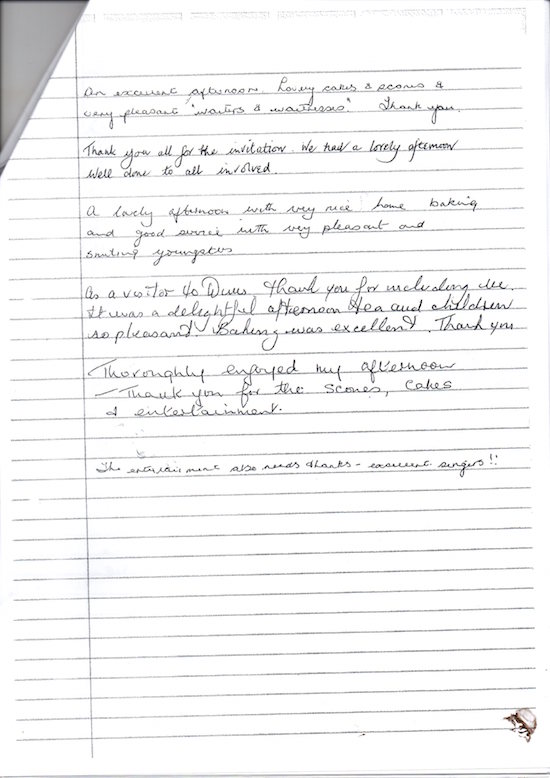 An excellent afternoon. Lovely cakes & scones &
very pleasant "waiters & waitresses". Thank you.
Thank you all for the invitation. We had a lovely afternoon
Well done to all involved.
A lovely afternoon with very nice home baking
and good service with very pleasant and
smiling youngsters
As a visitor to Duns thank you for including me.
It was a delightful afternoon tea and children
so pleasant Baking was excellent. Thank you
Thoroughly enjoyed my afternoon
- Thank you for the scones, cakes
& entertainment.
The entertainment also needs thanks - excellent singers!!